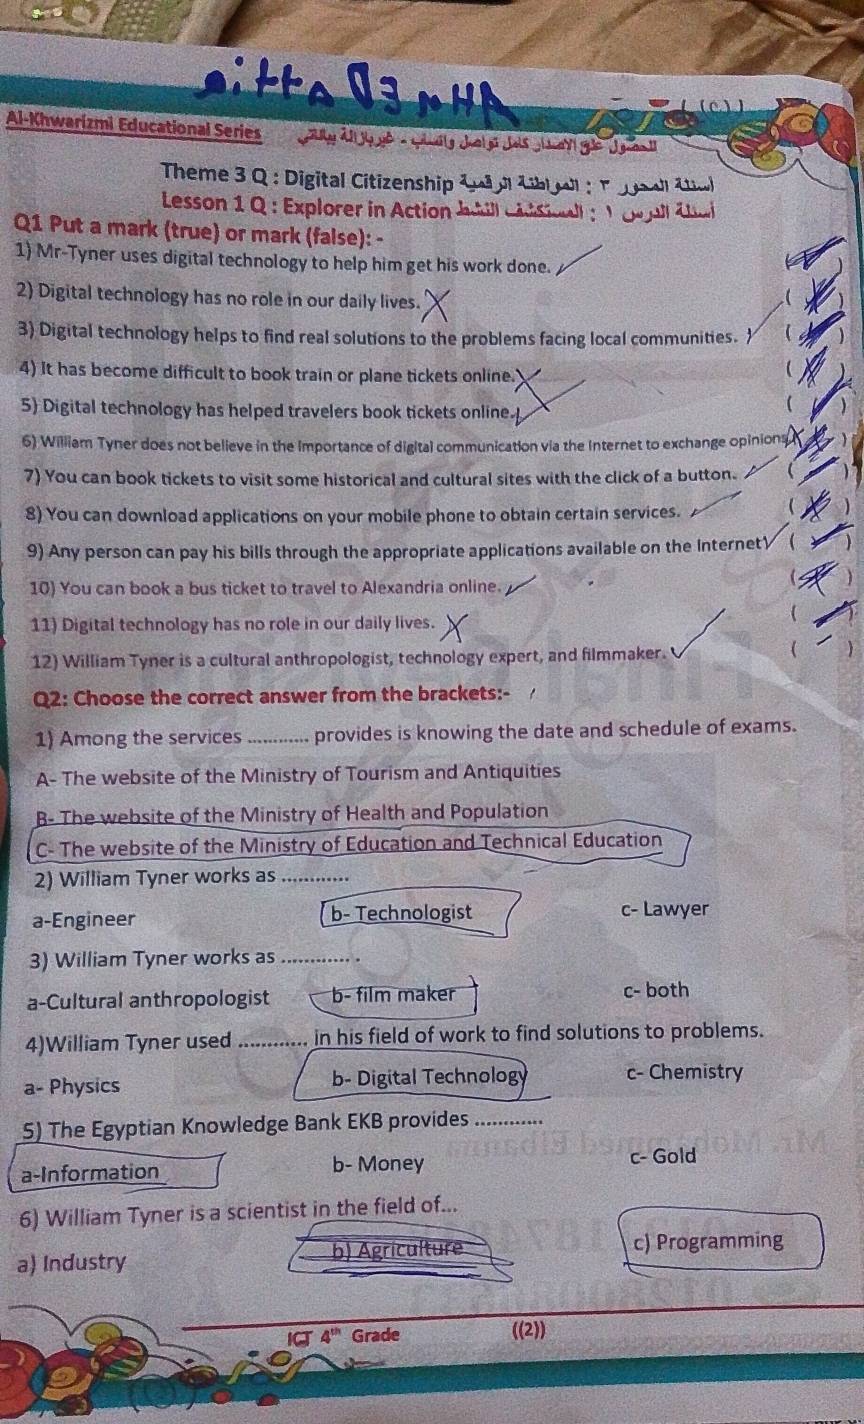 ((2))
Al-Khwarizmi Educational Series
الحصول على الإصدار كامل تواصل واتساب -
Theme 3 Q : Digital Citizenship أسئلة المحور ٣ : المواطنة الرقمية
Lesson 1 Q : Explorer in Action أسئلة الدرس ١ : المستكشف النشط
Q1 Put a mark (true) or mark (false): -
1) Mr-Tyner uses digital technology to help him get his work done. ✓ ( )
2) Digital technology has no role in our daily lives. X ( )
3) Digital technology helps to find real solutions to the problems facing local communities. ( )
4) It has become difficult to book train or plane tickets online. ( )
5) Digital technology has helped travelers book tickets online. ( )
6) William Tyner does not believe in the importance of digital communication via the Internet to exchange opinions. X ( )
7) You can book tickets to visit some historical and cultural sites with the click of a button. ✓ ( )
8) You can download applications on your mobile phone to obtain certain services. ✓ ( )
9) Any person can pay his bills through the appropriate applications available on the Internet ✓ ( )
10) You can book a bus ticket to travel to Alexandria online. ✓ ( )
11) Digital technology has no role in our daily lives. X ( )
12) William Tyner is a cultural anthropologist, technology expert, and filmmaker. ✓ ( )
Q2: Choose the correct answer from the brackets:-
1) Among the services ............ provides is knowing the date and schedule of exams.
A- The website of the Ministry of Tourism and Antiquities
B- The website of the Ministry of Health and Population
C- The website of the Ministry of Education and Technical Education
2) William Tyner works as ............
a-Engineer b- Technologist c- Lawyer
3) William Tyner works as ............ .
a-Cultural anthropologist b- film maker c- both
4)William Tyner used ............ in his field of work to find solutions to problems.
a- Physics b- Digital Technology c- Chemistry
5) The Egyptian Knowledge Bank EKB provides ............
a-Information b- Money c- Gold
6) William Tyner is a scientist in the field of...
a) Industry b) Agriculture c) Programming
ICT 4th Grade ((2))